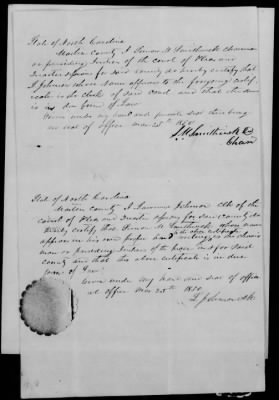 State of North Carolina
Martin County I Simon M Smithwick chairman
or presiding Justice of the court of Pleas and
Quarter Sessions for said county do hereby certify that
L Johnson whose name appears to the foregoing certifi
cate is the clerk of said court and that the same
is in due form of Law
Given under my hand and private seal there being
no seal of office
S. M. Smithwick
Chair
State of North Carolina
Martin County I Lawrence Johnson Clk of the
court of Pleas and Quarter Sessions for said county do
hereby certify that Simon M Smithwick whose name
appears in his own proper hand writing to the above is the chair
man or presiding Justice of the for said
county and that his above certificate is in due
form of Law
Given under my hand and seal of office
at office
L Johnson Clk